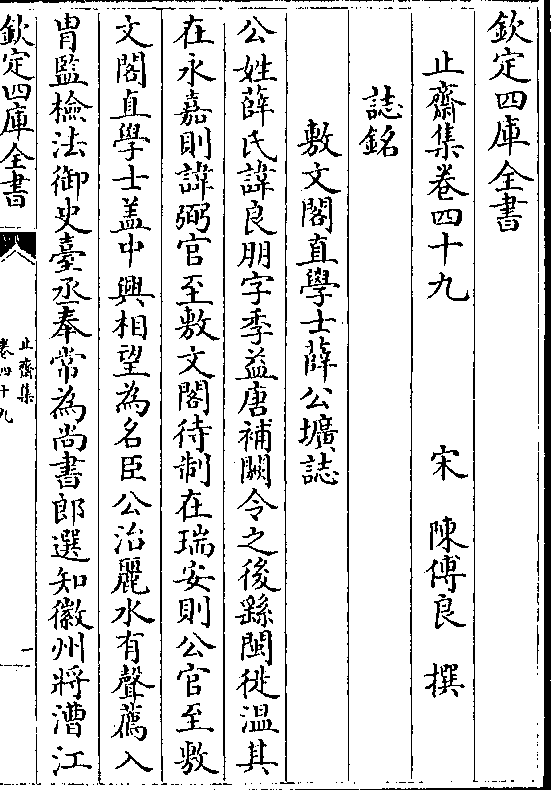 欽定四庫全書
止齋集卷四十九 宋 陳傅良 撰
誌銘
敷文閣直學士薛公壙誌
公姓薛氏諱良朋字季益唐補闕令之後繇閩徙溫其
在永嘉則諱弼官至敷文閣待制在瑞安則公官至敷
文閣直學士盖中興相望為名臣公治麗水有聲薦入
胄監檢法御史臺丞奉常為尚書郎選知徽州將漕江
欽定四庫全書
止齋集
卷四十九
一